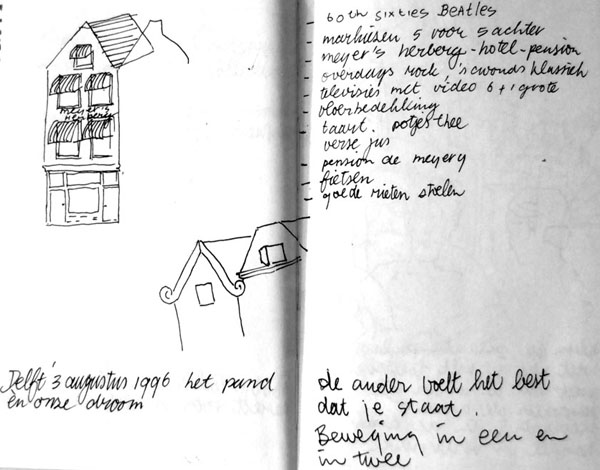 meyer's
herberg
Delft 3 augustus 1996 het pand
en onze droom
60th sixties BEATLES
markiezen 5 voor 5 achter
meyer's herberg - hotel - pension
overdags rock, 's avonds klassiek
televisies met video 6 + 1 grote
vloerbedekking
taart. potjes thee
verse jus
pension de meyerij
fietsen
goede rieten stoelen
de ander voelt het best
dat je staat.
Beweging in een en
in twee